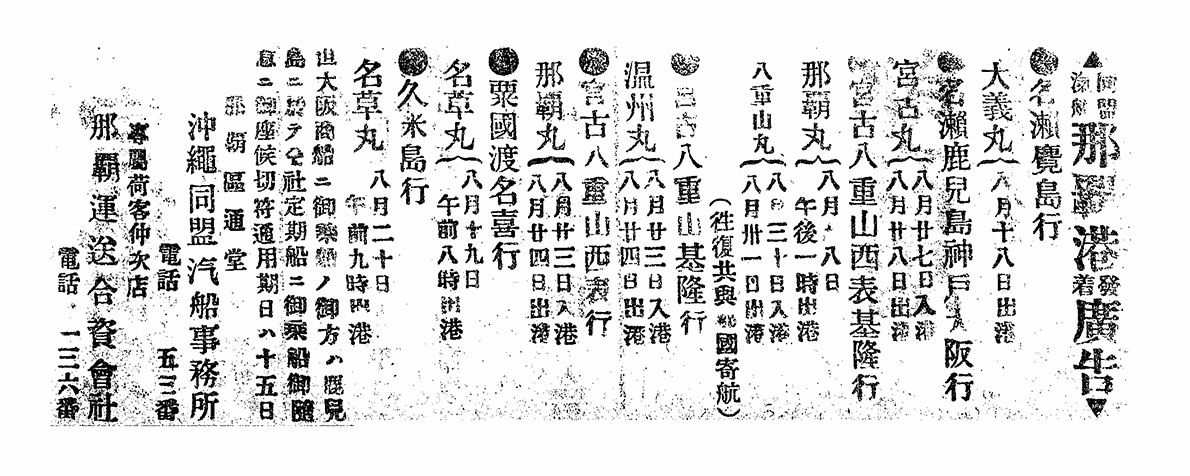 ▲同盟汽船那覇港發着廣告▼
●名瀬鹿島行
大義丸 八月十八日出港
●名瀬鹿兒島神戸大阪行
宮古丸 八月廿七日入港
八月廿八日出港
宮古八重山西表基隆行
那覇丸 八月 八日
午後一時出港
八重山丸 八月三十日入港
八月卅一日出港
(往復共與 國寄航)
●宮古八重山基隆行
温州丸 八月廿三日入港
八月廿四日出港
●宮古八重山西表行
那覇丸 八月廿三日入港
八月廿四日出港
●粟國渡名喜行
名草丸 八月十九日
午前八時出港
●久米島行
名草丸 八月二十日
午前九時出港
但大阪商船ニ御乘船ノ御方ハ鹿兒
島ニ於テ仝社定期船ニ御乘船御隨
意ニ御座候切符通用期日ハ十五日
那覇區通堂
沖繩同盟汽船事務所
電話 五三番
專屬荷客仲次店
那覇運送合資會社
電話 一二六番